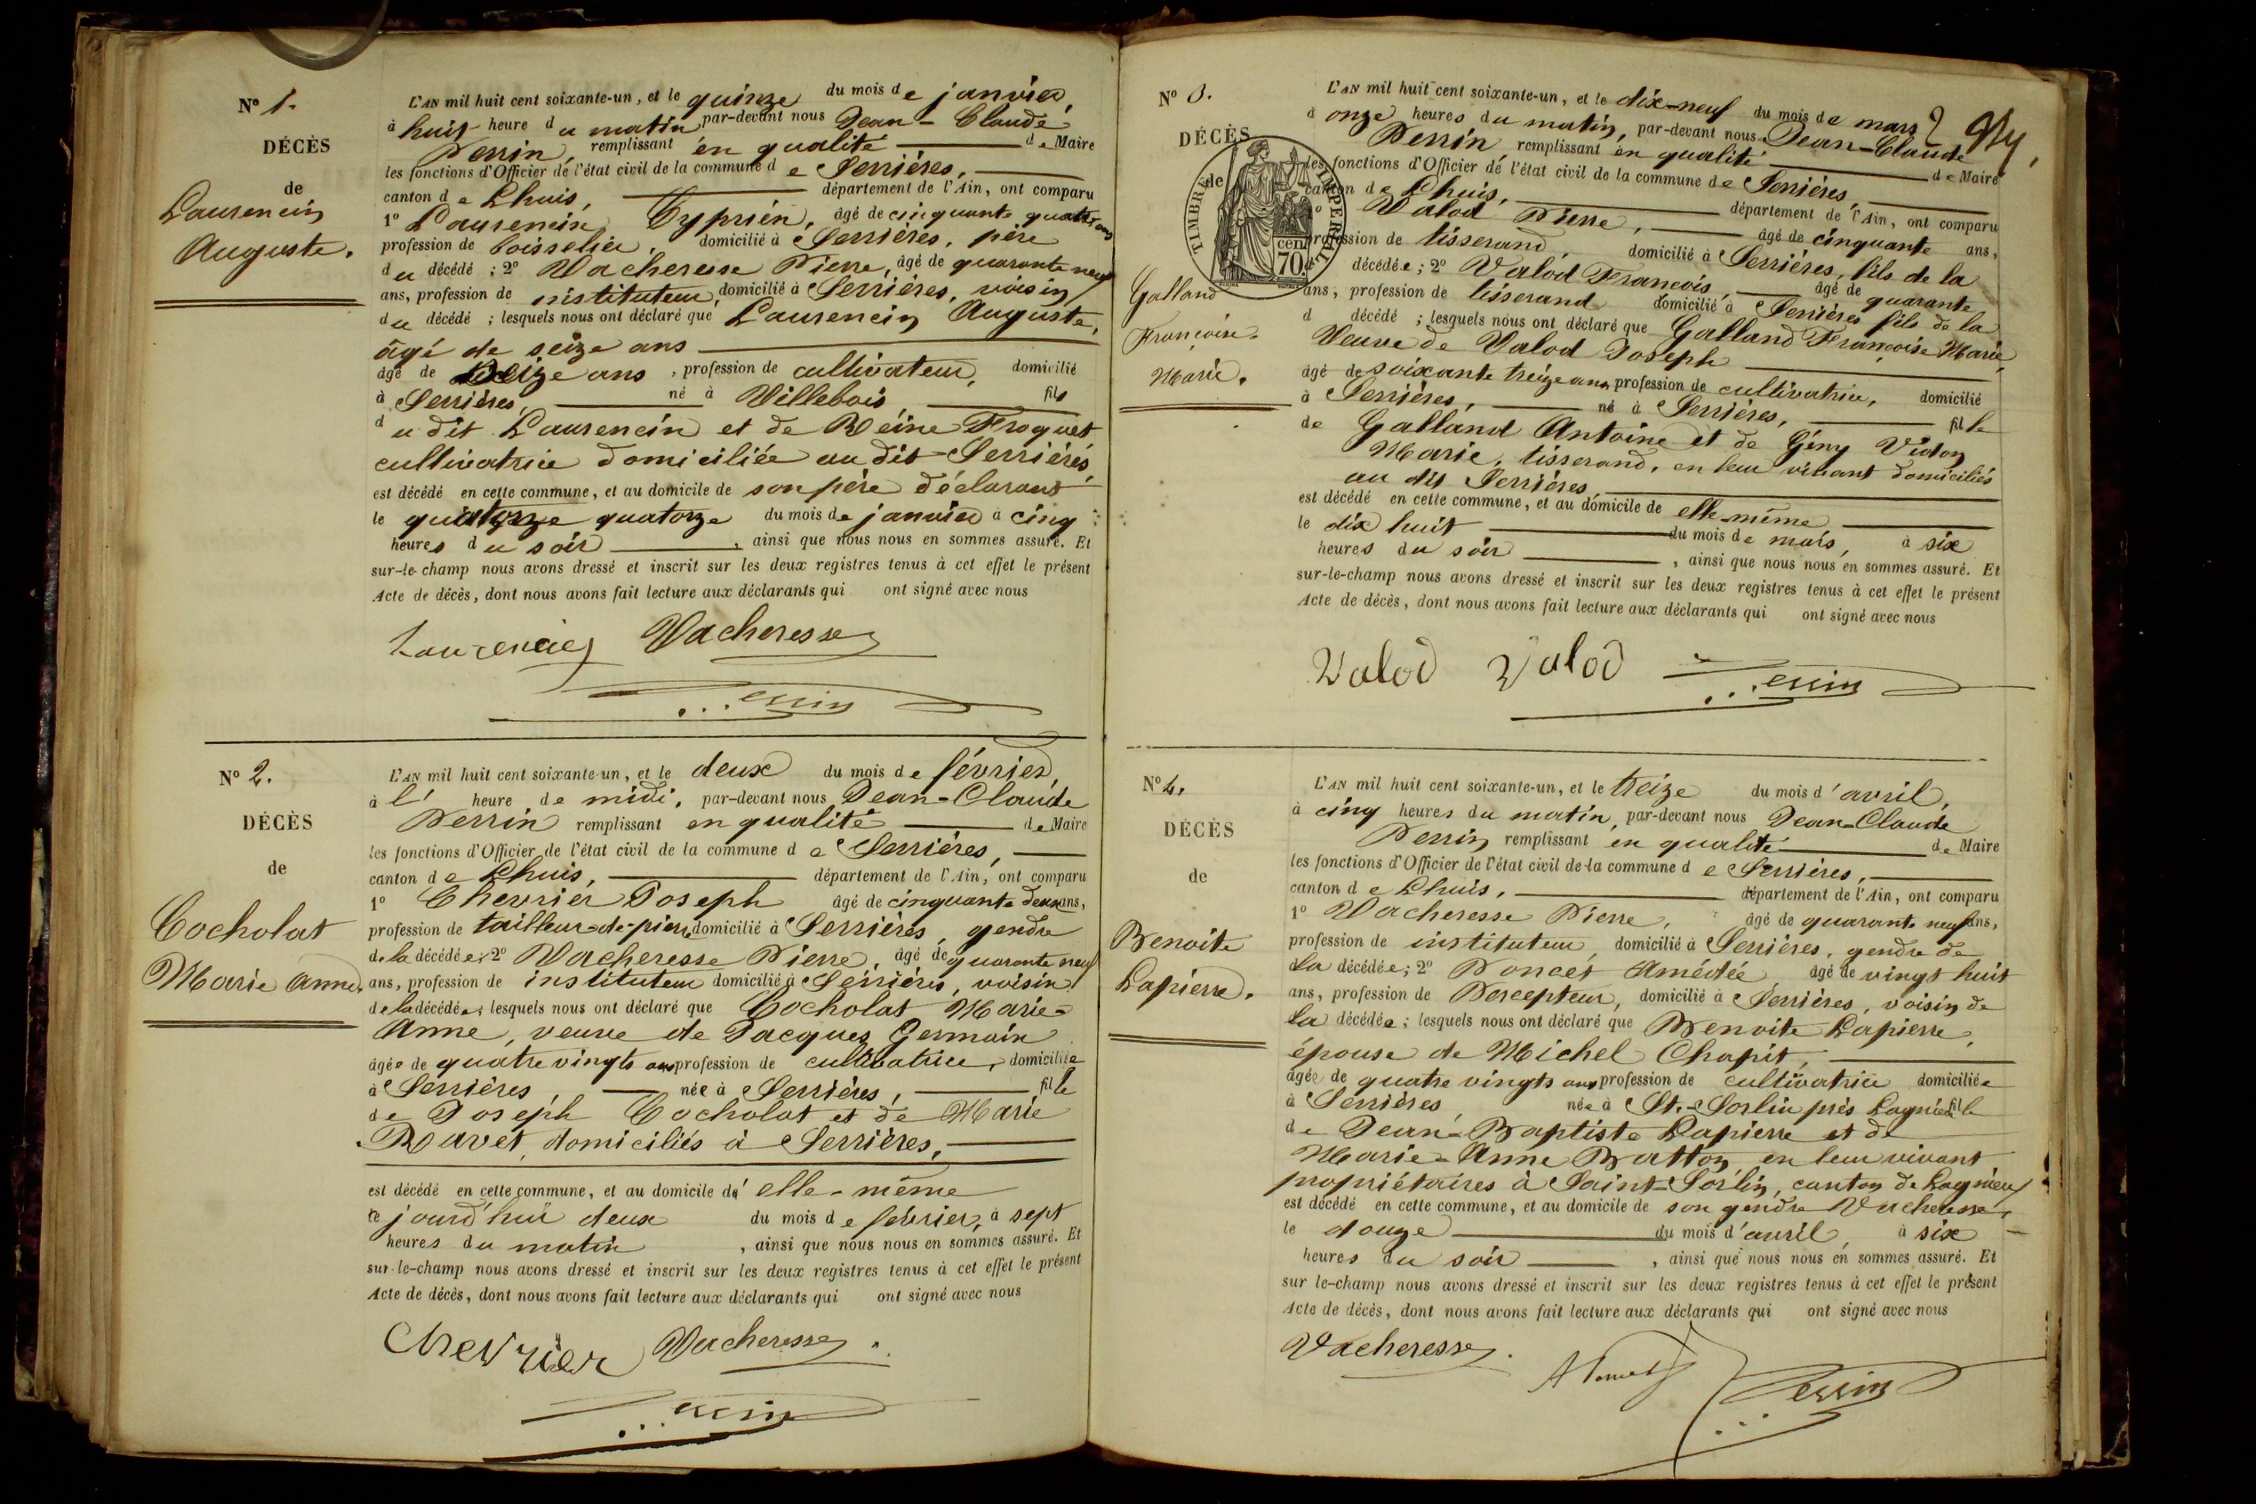 N° 1.
DÉCÈS
de
Laurencin
Auguste.
L'AN mil huit cent soixante-un, et le quinze du mois de janvier,
à huit heure du matin par-devant nous Jean-Claude
Perrin, remplissant en qualité de Maire
les fonctions d'Officier de l'état civil de la commune de Serrières,
canton de Lhuis, département de l'Ain, ont comparu
1° Laurencin Cyprien, âgé de cinquante quatre ans
profession de boisselier, domicilié à Serrières, père
du décédé ; 2° Vacheresse Pierre, âgé de quarante neuf
ans, profession de instituteur, domicilié à Serrières, voisin
du décédé ; lesquels nous ont déclaré que Laurencin Auguste,
âgé de seize ans
âgé de seize ans, profession de cultivateur, domicilié
à Serrières, né à Villebois fils
du dit Laurencin et de Reine Froquet
cultivatrice domiciliée au dit Serrières,
est décédé en cette commune, et au domicile de son père déclarant
le quatorze quatorze du mois de janvier à cinq
heures du soir, ainsi que nous nous en sommes assuré. Et
sur-le-champ nous avons dressé et inscrit sur les deux registres tenus à cet effet le présent
Acte de décès, dont nous avons fait lecture aux déclarants qui ont signé avec nous
Laurencin Vacheresse
Perrin
N° 2.
DÉCÈS
de
Cocholat
Marie Anne.
L'AN mil huit cent soixante-un, et le deux du mois de février,
à l' heure de midi, par-devant nous Jean-Claude
Perrin remplissant en qualité de Maire
les fonctions d'Officier de l'état civil de la commune de Serrières,
canton de Lhuis, département de l'Ain, ont comparu
1° Chevrier Joseph âgé de cinquante deux ans,
profession de tailleur-de-pierre domicilié à Serrières, gendre
de la décédée ; 2° Vacheresse Pierre, âgé de quarante neuf
ans, profession de instituteur domicilié à Serrières, voisin
de la décédée ; lesquels nous ont déclaré que Cocholat Marie-
Anne, veuve de Jacques Germain
âgée de quatre vingts ans profession de cultivatrice, domiciliée
à Serrières née à Serrières, fille
de Joseph Cocholat et de Marie
Ravet, domiciliés à Serrières,
est décédé en cette commune, et au domicile d' elle-même
ce jourd'hui deux du mois de février, à sept
heures du matin, ainsi que nous nous en sommes assuré. Et
sur-le-champ nous avons dressé et inscrit sur les deux registres tenus à cet effet le présent
Acte de décès, dont nous avons fait lecture aux déclarants qui ont signé avec nous
Chevrier Vacheresse
Perrin
N° 3.
DÉCÈS
de
Galland
Françoise
Marie.
TIMBRE IMPERIAL
70 cent
L'AN mil huit cent soixante-un, et le dix-neuf du mois de mars
à onze heures du matin, par-devant nous Jean-Claude
Perrin remplissant en qualité de Maire
les fonctions d'Officier de l'état civil de la commune de Serrières,
canton de Lhuis, département de l'Ain, ont comparu
1° Valod Pierre, âgé de cinquante ans,
profession de tisserand, domicilié à Serrières, fils de la
décédée ; 2° Valod François, âgé de quarante
ans, profession de tisserand domicilié à Serrières fils de la
d décédé ; lesquels nous ont déclaré que Galland Françoise Marie,
Veuve de Valod Joseph
âgé de soixante treize ans, profession de cultivatrice, domicilié
à Serrières, né à Serrières, fille
de Galland Antoine et de Gény Vidon
Marie, tisserand, en leur vivant domiciliés
au dit Serrières,
est décédé en cette commune, et au domicile de elle-même
le dix huit du mois de mars, à six
heures du soir, ainsi que nous nous en sommes assuré. Et
sur-le-champ nous avons dressé et inscrit sur les deux registres tenus à cet effet le présent
Acte de décès, dont nous avons fait lecture aux déclarants qui ont signé avec nous
Valod Valod Perrin
N° 4.
DÉCÈS
de
Benoite
Lapierre.
L'AN mil huit cent soixante-un, et le treize du mois d'avril,
à cinq heures du matin, par-devant nous Jean-Claude
Perrin remplissant en qualité de Maire
les fonctions d'Officier de l'état civil de la commune de Serrières,
canton de Lhuis, département de l'Ain, ont comparu
1° Vacheresse Pierre, âgé de quarante neuf ans,
profession de instituteur domicilié à Serrières, gendre de
la décédée ; 2° Poncet Amédée âgé de vingt huit
ans, profession de Percepteur, domicilié à Serrières, voisin de
la décédée ; lesquels nous ont déclaré que Benoite Lapierre,
épouse de Michel Chapit,
âgée de quatre vingts ans profession de cultivatrice domiciliée
à Serrières, née à St.-Sorlin près Lagnieu fille
de Jean-Baptiste Lapierre et de
Marie-Anne Batton en leur vivant
propriétaires à Saint-Sorlin, canton de Lagnieu,
est décédé en cette commune, et au domicile de son gendre Vacheresse,
le douze du mois d'avril, à six
heures du soir, ainsi que nous nous en sommes assuré. Et
sur le-champ nous avons dressé et inscrit sur les deux registres tenus à cet effet le présent
Acte de décès, dont nous avons fait lecture aux déclarants qui ont signé avec nous
Vacheresse
Perrin